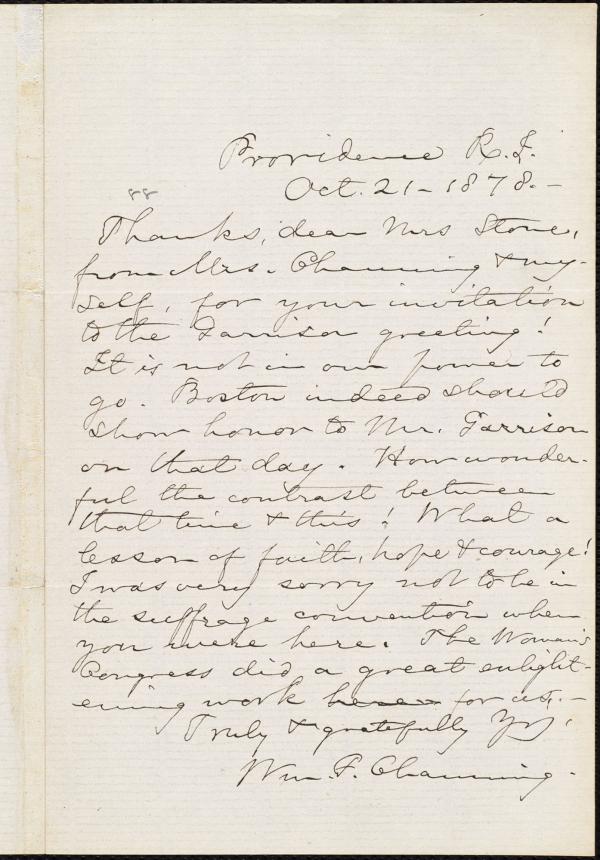 Providence R.I.
Oct. 21 - 1878. -
Thanks, dear Mrs Stone,
from Mrs. Channing & my-
self, for your invitation
to the Garrison greeting!
It is not in our power to
go. Boston indeed should
show honor to Mr. Garrison
on that day. How wonder-
ful the contrast between
that time & this! What a
lesson of faith, hope & courage!
I was very sorry not to be in
the suffrage convention when
you were here. The Woman's
Congress did a great enlight-
ening work here for us. -
Truly & gratefully Yrs,
Wm. F. Channing.